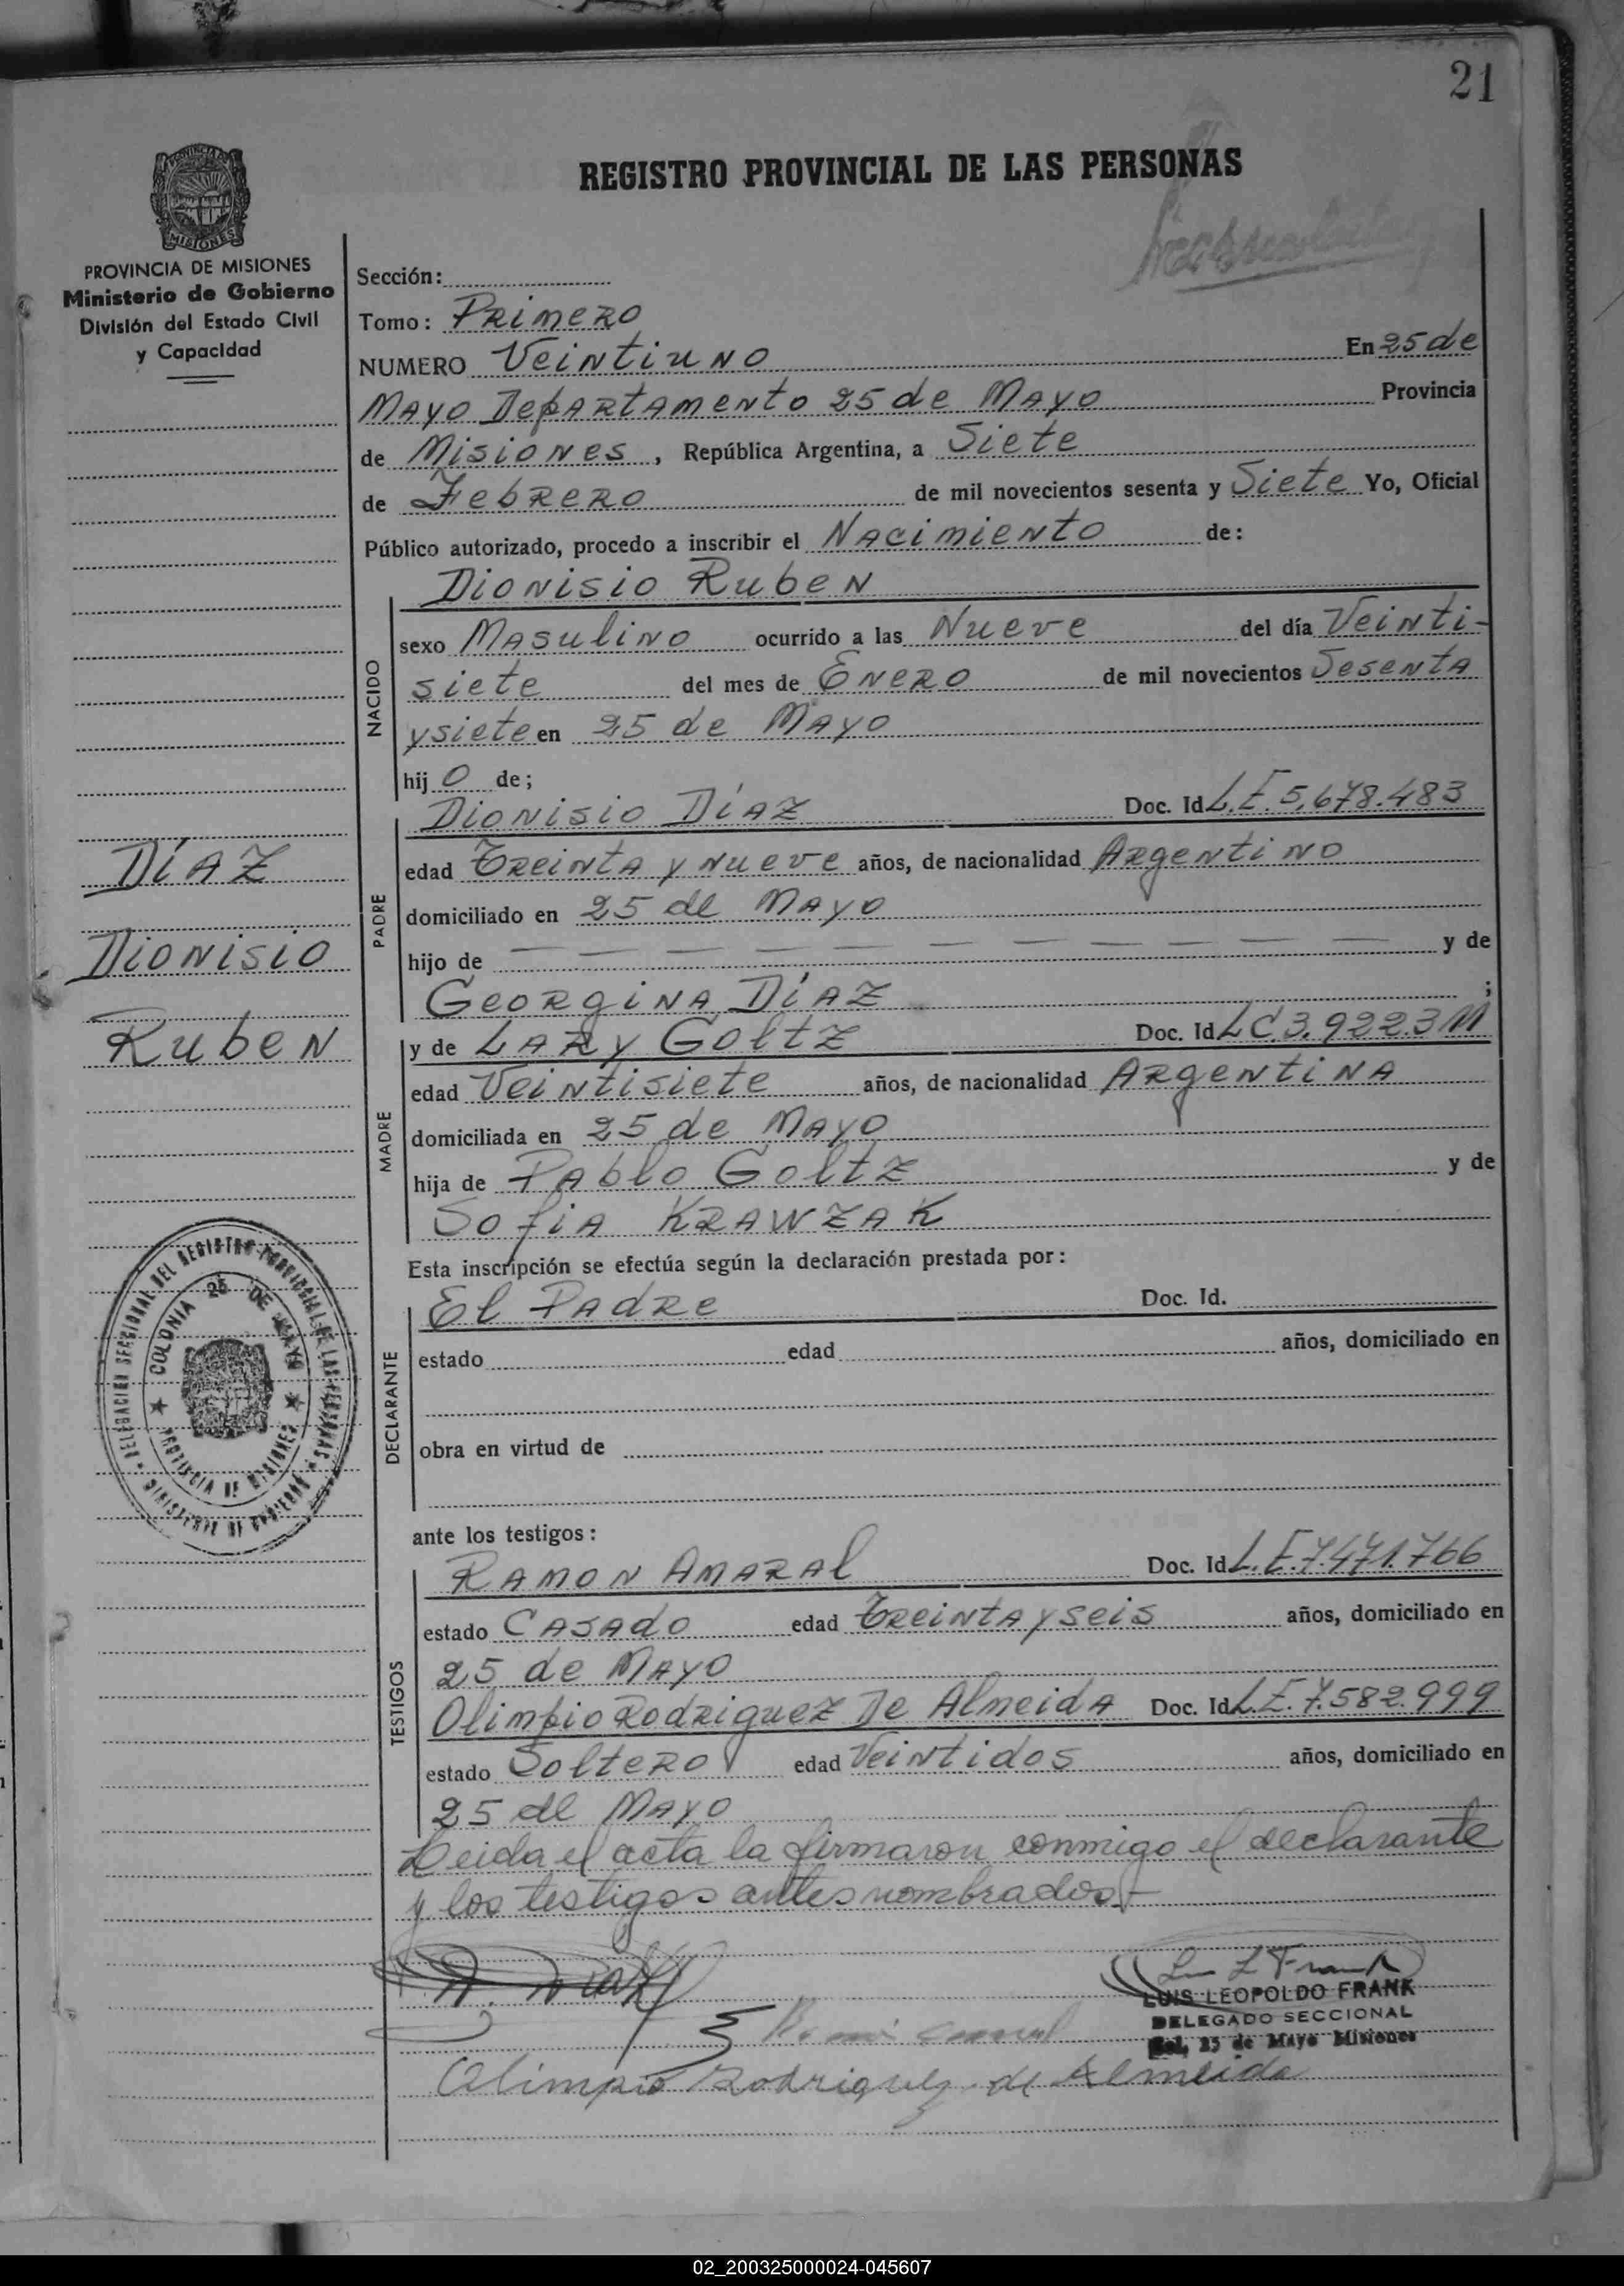 21
REGISTRO PROVINCIAL DE LAS PERSONAS
PROVINCIA DE MISIONES
Ministerio de Gobierno
División del Estado Civil
y Capacidad
Sección:
Tomo: Primero
NUMERO Veintiuno En 25 de
Mayo Departamento 25 de Mayo Provincia
de Misiones, República Argentina, a Siete
de Febrero de mil novecientos sesenta y Siete Yo, Oficial
Público autorizado, procedo a inscribir el Nacimiento de:
Dionisio Ruben
NACIDO
sexo Masulino ocurrido a las Nueve del día Veinti-
siete del mes de Enero de mil novecientos Sesenta
y siete en 25 de Mayo
hij o de;
Dionisio Díaz Doc. Id L.E. 5.678.483
PADRE
edad Treinta y nueve años, de nacionalidad Argentino
domiciliado en 25 de Mayo
hijo de — — — — — — — — — — — y de
Georgina Díaz ;
y de Lary Goltz Doc. Id L.C. 3.922.311
MADRE
edad Veintisiete años, de nacionalidad Argentina
domiciliada en 25 de Mayo
hija de Pablo Goltz y de
Sofia Krawzak
Esta inscripción se efectúa según la declaración prestada por:
El Padre Doc. Id.
DECLARANTE
estado edad años, domiciliado en
obra en virtud de
ante los testigos:
Ramon Amaral Doc. Id L.E. 7.471.766
TESTIGOS
estado Casado edad Treinta y seis años, domiciliado en
25 de Mayo
Olimpio Rodriguez De Almeida Doc. Id L.E. 7.582.999
estado Soltero edad Veintidos años, domiciliado en
25 de Mayo
Leida el acta la firmaron conmigo el declarante
y los testigos antes nombrados.-
Díaz
Dionisio
Ruben
DELEGACION SECCIONAL DEL REGISTRO PROVINCIAL DE LAS PERSONAS
MINISTERIO DE GOBIERNO
COLONIA 25 DE MAYO
PROVINCIA DE MISIONES
LUIS LEOPOLDO FRANK
DELEGADO SECCIONAL
Col. 25 de Mayo Misiones
Olimpio Rodriguez de Almeida
02_200325000024-045607